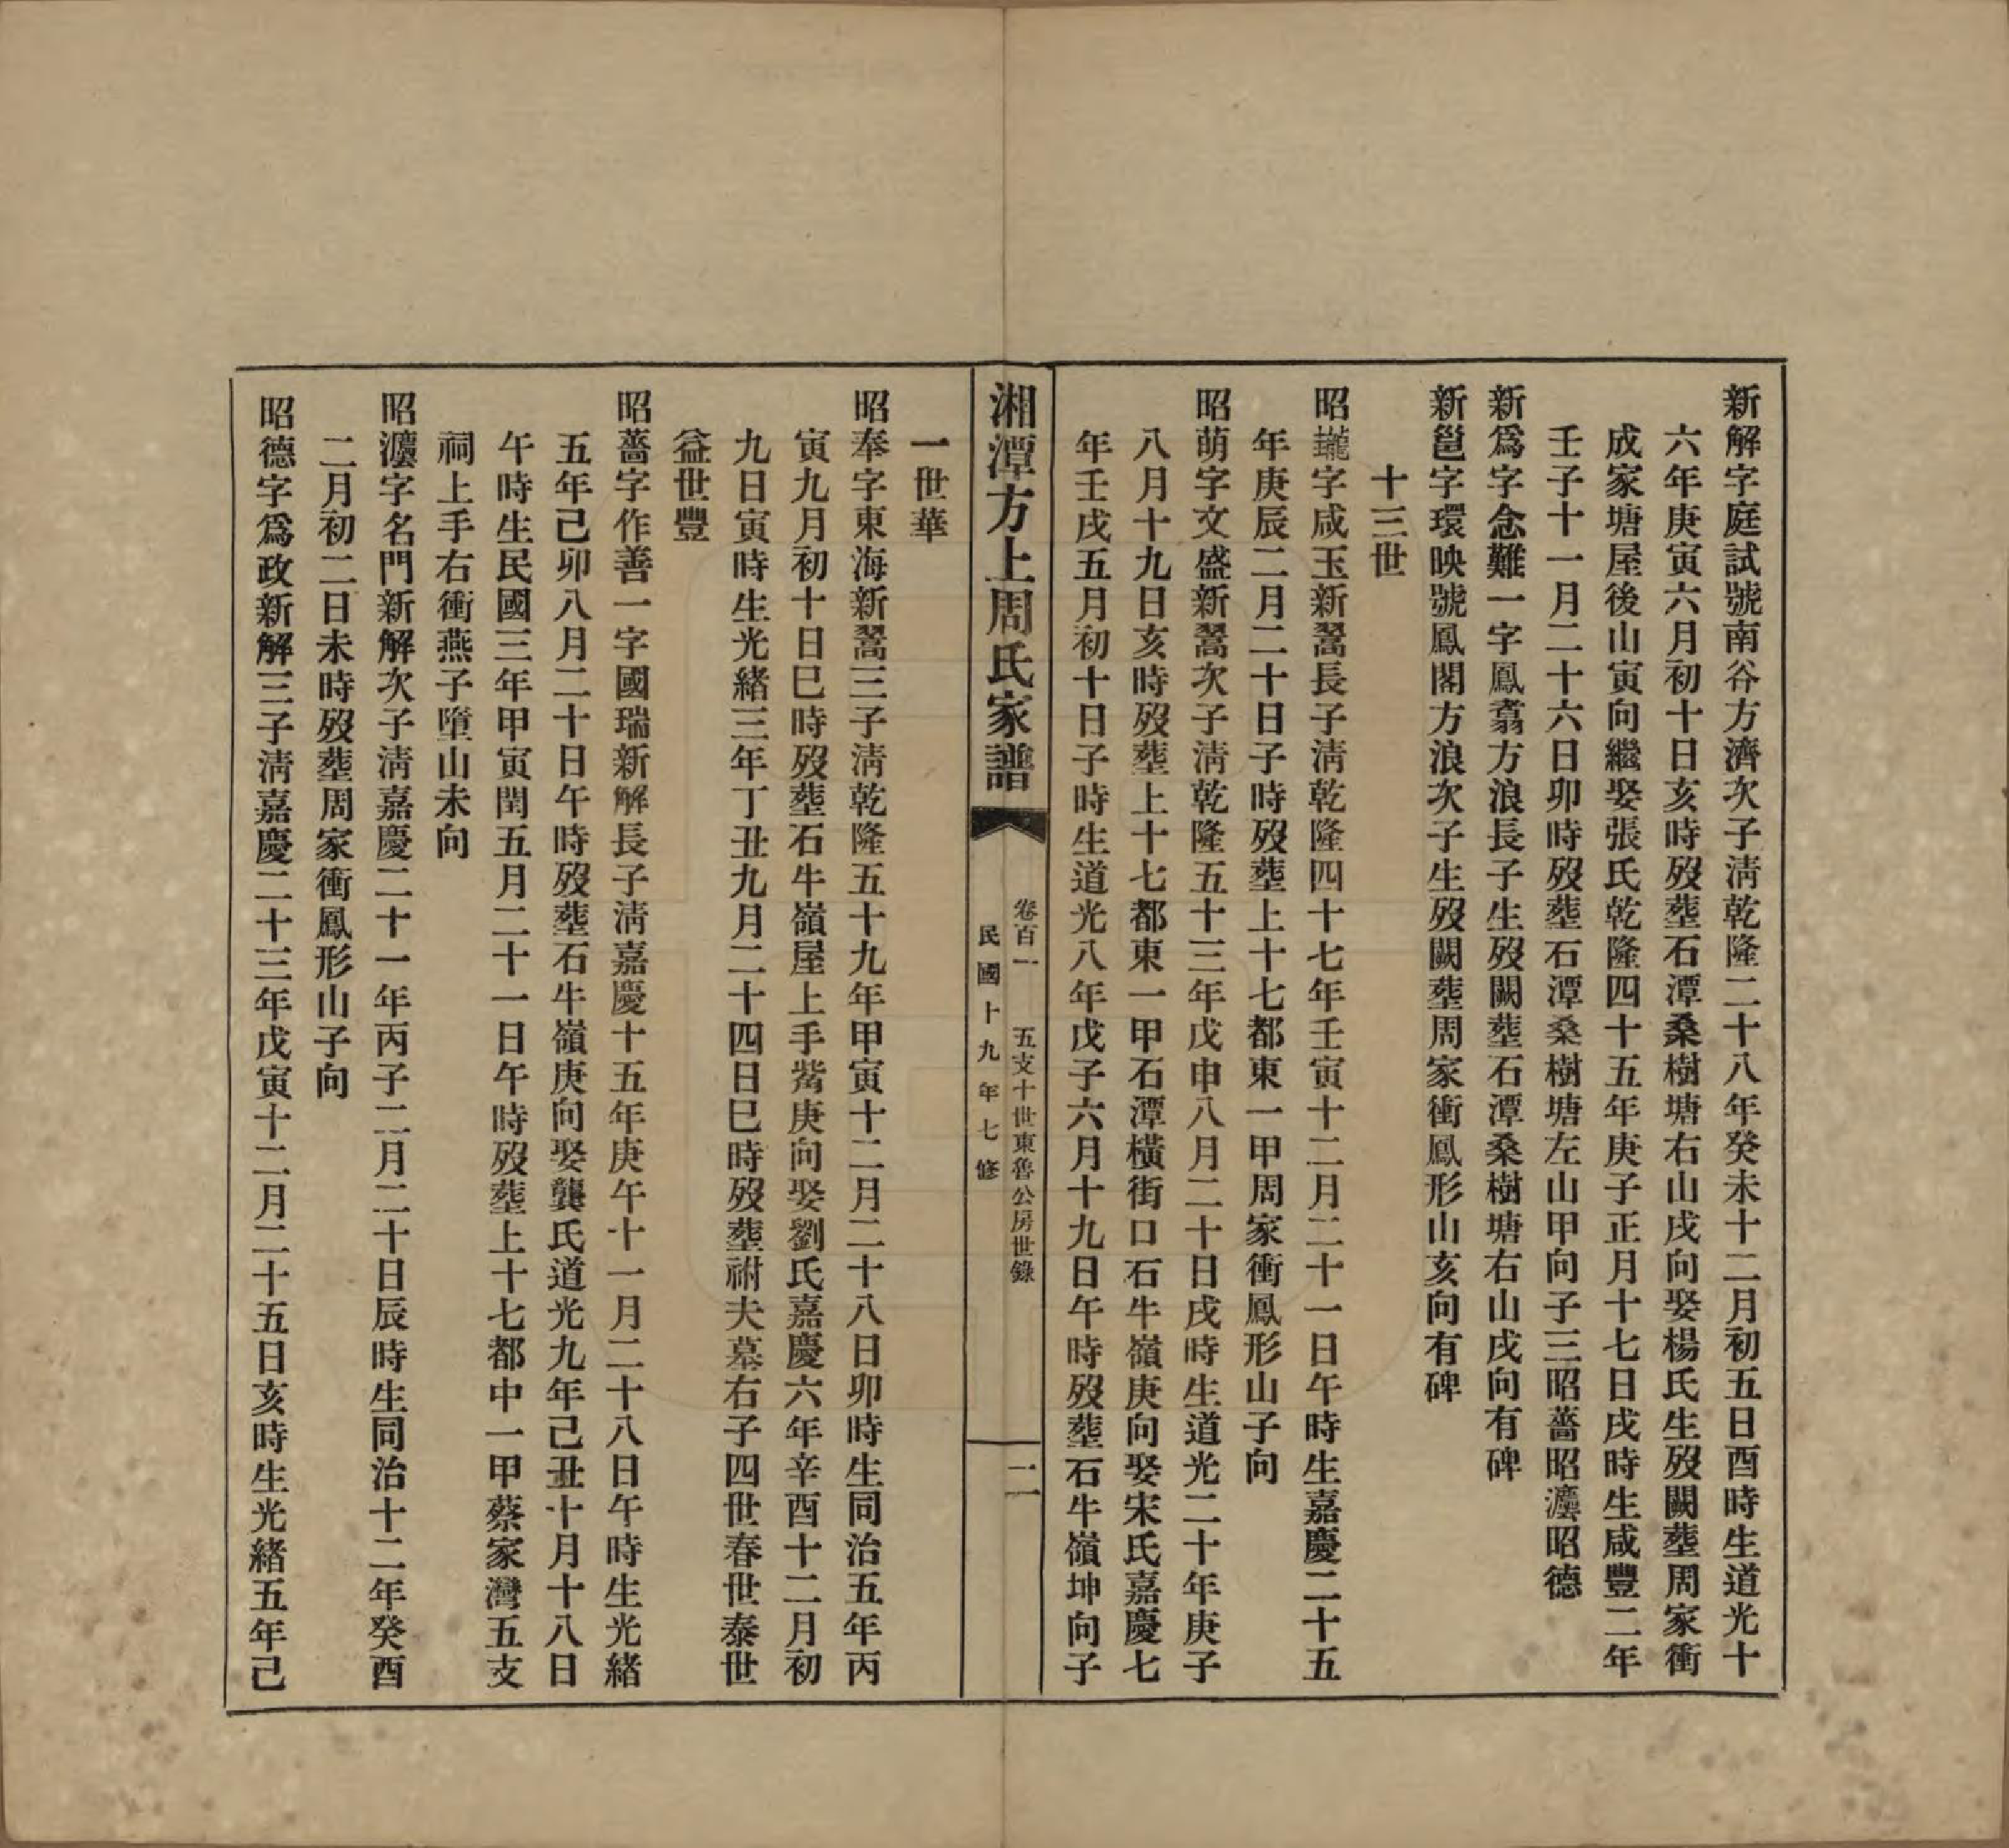 新解字庭試號南谷方濟次子淸乾隆二十八年癸未十二月初五日酉時生道光十
六年庚寅六月初十日亥時歿塟石潭桑樹塘右山戌向娶楊氏生歿闕塟周家衝
成家塘屋後山寅向繼娶張氏乾隆四十五年庚子正月十七日戌時生咸豐二年
壬子十一月二十六日卯時歿塟石潭桑樹塘左山甲向子三昭薔昭灋昭德
新爲字念難一字鳳翥方浪長子生歿闕塟石潭桑樹塘右山戌向有碑
新邕字環映號鳳閣方浪次子生歿闕塟周家衝鳳形山亥向有碑
十三世
昭瓏字咸玉新翯長子淸乾隆四十七年壬寅十二月二十一日午時生嘉慶二十五
年庚辰二月二十日子時歿塟上十七都東一甲周家衝鳳形山子向
昭萌字文盛新翯次子淸乾隆五十三年戊申八月二十日戌時生道光二十年庚子
八月十九日亥時歿塟上十七都東一甲石潭橫街口石牛嶺庚向娶宋氏嘉慶七
年壬戌五月初十日子時生道光八年戊子六月十九日午時歿塟石牛嶺坤向子
湘潭方上周氏家譜
卷百一 五支十世東魯公房世錄
民國十九年七修
二
一世華
昭奉字東海新翯三子淸乾隆五十九年甲寅十二月二十八日卯時生同治五年丙
寅九月初十日巳時歿塟石牛嶺屋上手嵴庚向娶劉氏嘉慶六年辛酉十二月初
九日寅時生光緒三年丁丑九月二十四日巳時歿塟祔夫墓右子四世春世泰世
益世豐
昭薔字作善一字國瑞新解長子淸嘉慶十五年庚午十一月二十八日午時生光緒
五年己卯八月二十日午時歿塟石牛嶺庚向娶龔氏道光九年己丑十月十八日
午時生民國三年甲寅閏五月二十一日午時歿塟上十七都中一甲蔡家灣五支
祠上手右衝燕子墮山未向
昭灋字名門新解次子淸嘉慶二十一年丙子二月二十日辰時生同治十二年癸酉
二月初二日未時歿塟周家衝鳳形山子向
昭德字爲政新解三子淸嘉慶二十三年戊寅十二月二十五日亥時生光緒五年己